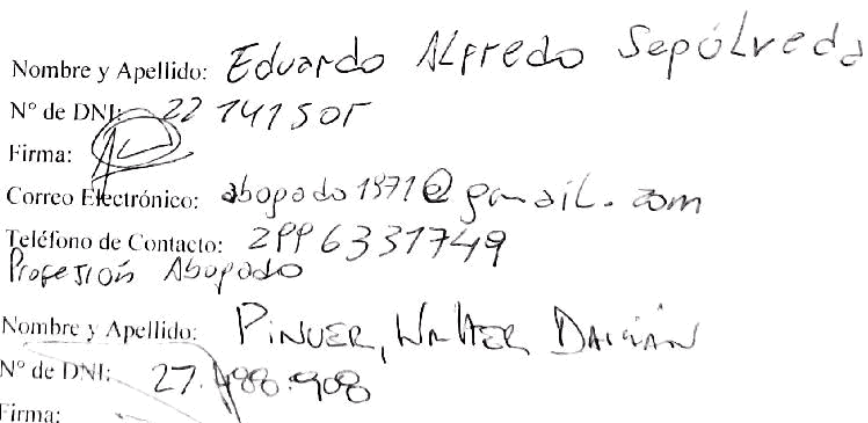 Nombre y Apellido: Eduardo ALfredo SepúLveda
N° de DNI: 22 141505
Firma:
Correo Electrónico: abogado1971@gmaiL.com
Teléfono de Contacto: 2996331749
Profesión Abogado
Nombre y Apellido: PiNUER, WALTER DAMIÁN
N° de DNI: 27.488.908
Firma: